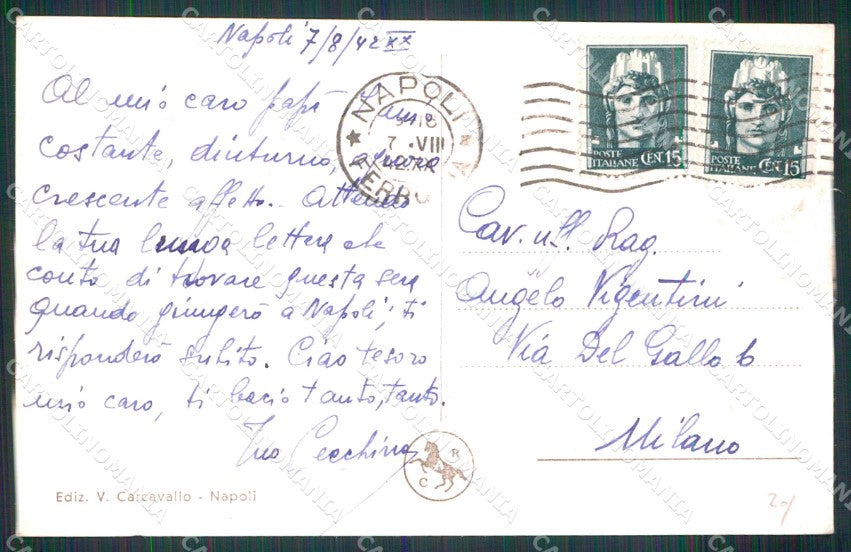 Napoli 7/8/42 XX
Al mio caro papà l'amo
costante, diuturno, ancora
crescente affetto. Attendo
la tua lunga lettera che
conto di trovare questa sera
quando giungerò a Napoli; ti
risponderò subito. Ciao tesoro
mio caro, ti bacio tanto, tanto.
Tuo Cecchino
Ediz. V. Carcavallo - Napoli
R
C
NAPOLI
7 . VIII
FERROVIA
POSTE
ITALIANE CEN. 15
POSTE
ITALIANE CEN. 15
Cav. uff. Rag.
Angelo Vigentini
Via Del Gallo 6
Milano
CARTOLINOMANIA